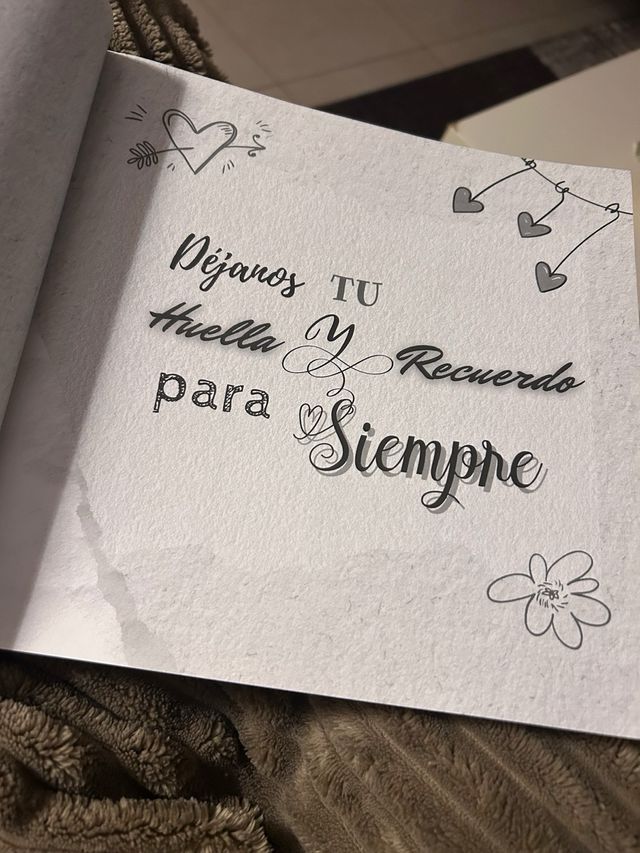 Déjanos TU
Huella Y Recuerdo
para Siempre